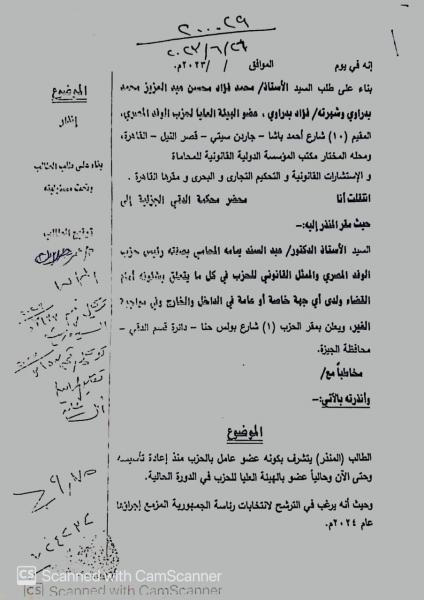 ٢٠٠٠٢٩
٢٠٢٣/٦/٢٦
إنه في يوم الموافق / /٢٠٢٣م.
بناء على طلب السيد الأستاذ/ محمد فؤاد محسن عبد العزيز محمد
بدراوي وشهرته/ فؤاد بدراوي، عضو الهيئة العليا لحزب الوفد المصري،
المقيم (١٠) شارع أحمد باشا – جاردن سيتي – قصر النيل – القاهرة،
ومحله المختار مكتب المؤسسة الدولية القانونية للمحاماة
و الإستشارات القانونية و التحكيم التجارى و البحرى و مقرها القاهرة .
انتقلت أنا محضر محكمة الدقي الجزئية إلى
حيث مقر المنذر إليه:-
السيد الأستاذ الدكتور/ عبد السند يمامه المحامي بصفته رئيس حزب
الوفد المصري والممثل القانوني للحزب في كل ما يتعلق بشئونه أمام
القضاء ولدى أي جهة خاصة أو عامة في الداخل والخارج وفي مواجهة
الغير، ويعلن بمقر الحزب (١) شارع بولس حنا – دائرة قسم الدقي –
محافظة الجيزة.
مخاطباً مع/
وأنذرته بالآتي:-
الموضوع
الطالب (المنذر) يتشرف بكونه عضو عامل بالحزب منذ إعادة تأسيسه
وحتى الآن وحالياً عضو بالهيئة العليا للحزب في الدورة الحالية.
وحيث أنه يرغب في الترشح لانتخابات رئاسة الجمهورية المزمع إجراؤها
عام ٢٠٢٤م.
الموضوع
إنذار
بناء على طلب الطالب
وتحت مسئوليته
توقيع الطالب
CS Scanned with CamScanner
CS Scanned with CamScanner